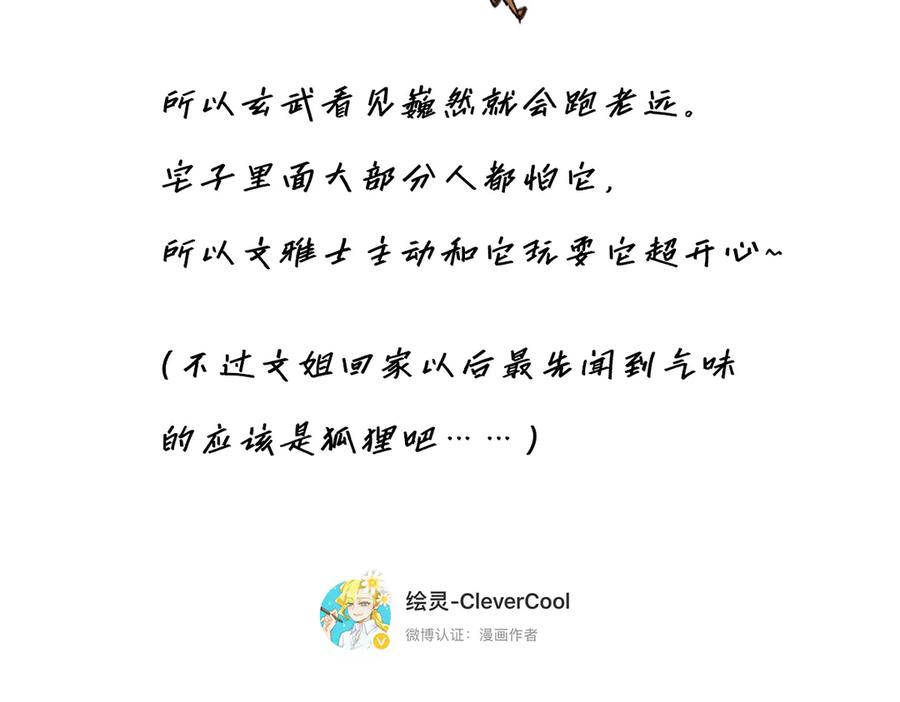 所以玄武看见巍然就会跑老远。
宅子里面大部分人都怕它,
所以文雅士主动和它玩耍它超开心~
(不过文姐回家以后最先闻到气味
的应该是狐狸吧……)
绘灵-CleverCool
微博认证：漫画作者